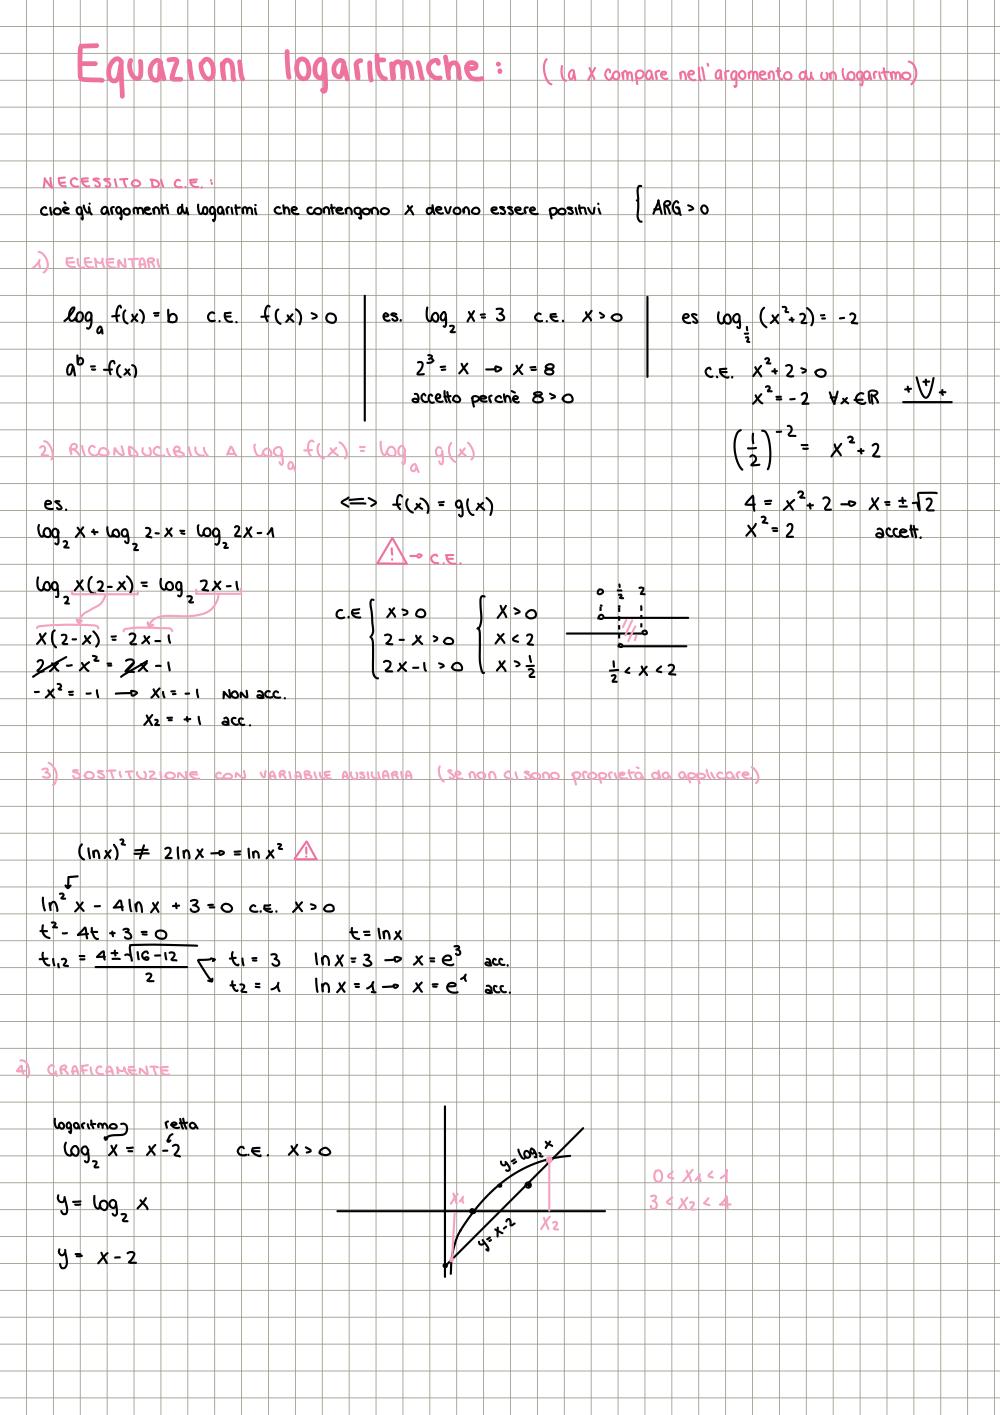 Equazioni logaritmiche: (la x compare nell'argomento di un logaritmo)
NECESSITO DI C.E.:
cioè gli argomenti di logaritmi che contengono x devono essere positivi { ARG > 0
1) ELEMENTARI
logₐ f(x) = b C.E. f(x) > 0
aᵇ = f(x)
es. log₂ x = 3 C.E. x > 0
2³ = x → x = 8
accetto perchè 8 > 0
es log_{1/2} (x²+2) = -2
C.E. x² + 2 > 0
x² = -2 ∀x ∈ ℝ + +
(1/2)⁻² = x² + 2
4 = x² + 2 → x = ±√2
x² = 2 accett.
2) RICONDUCIBILI A logₐ f(x) = logₐ g(x)
es.
log₂ x + log₂ 2-x = log₂ 2x-1
<=> f(x) = g(x)
⚠ → C.E.
log₂ x(2-x) = log₂ 2x-1
x(2-x) = 2x-1
2x - x² = 2x - 1
-x² = -1 → x₁ = -1 NON acc.
x₂ = +1 acc.
C.E { x > 0 { x > 0
2 - x > 0 x < 2
2x-1 > 0 x > 1/2
0 1/2 2
1/2 < x < 2
3) SOSTITUZIONE CON VARIABILE AUSILIARIA (se non ci sono proprietà da applicare)
(ln x)² ≠ 2 ln x → = ln x² ⚠
ln² x - 4 ln x + 3 = 0 C.E. x > 0
t² - 4t + 3 = 0 t = ln x
t₁,₂ = (4 ± √16-12)/2 t₁ = 3 ln x = 3 → x = e³ acc.
t₂ = 1 ln x = 1 → x = e¹ acc.
4) GRAFICAMENTE
logaritmo retta
log₂ x = x-2 C.E. x > 0
y = log₂ x
y = x - 2
y = log₂ x
x₁
x₂
y = x-2
0 < x₁ < 1
3 < x₂ < 4